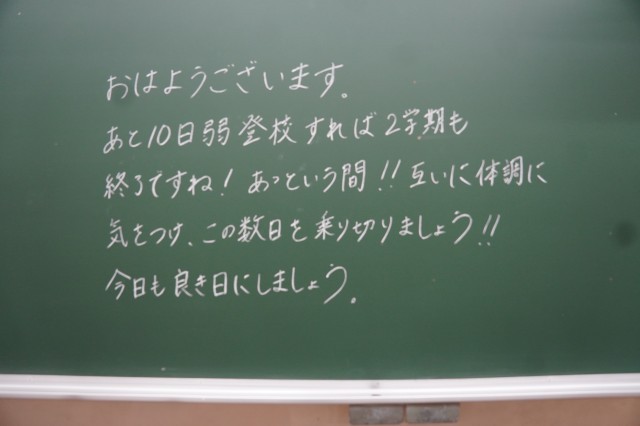 おはようございます。
あと10日弱登校すれば2学期も
終了ですね！あっという間！！互いに体調に
気をつけ、この数日を乗り切りましょう！！
今日も良き日にしましょう。